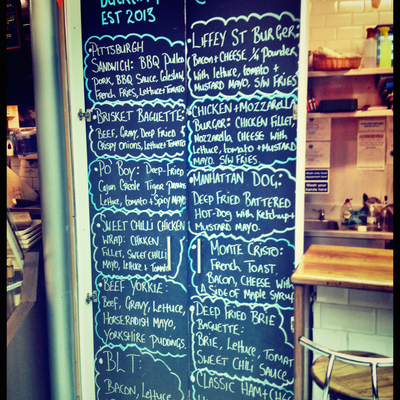 EST 2013
PITTSBURGH
SANDWICH: BBQ Pulled
Pork, BBQ Sauce, Coleslaw,
French Fries, Lettuce+Tomato
BRISKET BAGUETTE:
BEEF, Gravy, Deep Fried
Crispy Onions, Lettuce+Tomato
PO' BOY: Deep-Fried
Cajun Creole Tiger Prawns
Lettuce, tomato + Spicy Mayo
SWEET CHILLI CHICKEN
WRAP: CHICKEN
FILLET, SWEET CHILLI
MAYO, Lettuce + Tomato
BEEF YORKIE:
Beef, GRAVY, Lettuce,
HORSERADISH MAYO,
YORKSHIRE PUDDINGS.
BLT:
BACON, Lettuce
LIFFEY ST BURGER:
Bacon + CHEESE, 1/4 Pounder
With lettuce, tomato +
MUSTARD MAYO, S/W FRIES
CHICKEN + MOZZARELLA
BURGER: CHICKEN FILLET,
Mozzarella CHEESE with
Lettuce, tomato + MUSTARD
MAYO. S/W FRIES.
MANHATTAN DOG:
DEEP FRIED BATTERED
HOT-DOG with Ketchup +
MUSTARD MAYO.
MONTE CRISTO:
French TOAST
BACON, CHEESE WITH
A SIDE OF MAPLE SYRUP
DEEP FRIED BRIE
BAGUETTE:
BRIE, Lettuce, TOMATO
SWEET CHILI SAUCE
CLASSIC HAM + CHEESE
Wash your
hands here